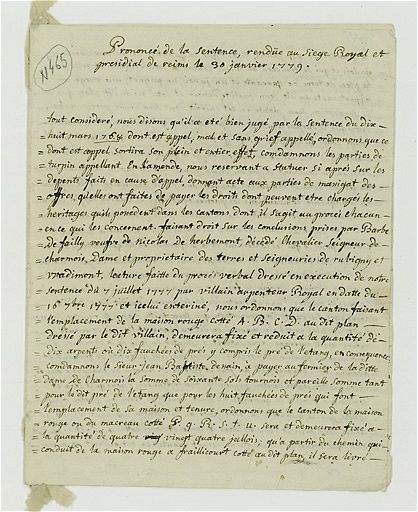 N 465
Prononcé de la Sentence, rendüe au Siege Royal et
presidial de reims le 30 janvier 1779.
tout consideré, nous disons qu'il a eté bien jugé par la Sentence du dix-
huit mars 1768 dont est appel, mal et sans grief appellé, ordonnons que ce
dont est appel sortira son plein et entier effet, condamnons les parties de
turpin appellant En lamende, nous reservant a statuer si après sur les
depents faits en cause d'appel, donnant acte aux parties de masigat des
offres, quelles ont faites de payer les droits dont peuvent etre chargés les
heritages quils possedent dans les cantons dont il s'agit au procés chacun
en ce qui les concernent. faisant droit sur les conclusions prises par Barbe
de failly, veufve de nicolas de herbemont, décédé Chevalier Seigneur de
charmois, Dame et proprietaire des terres et Seigneuries de rubigny et
vadimont, lecture faitte du procés verbal dressé en execution de notre
Sentence du 7 juillet 1777 par villain arpenteur Royal en datte du
16 7bre 1777 et icelui enteriné, nous ordonnons que le canton faisant
l'emplacement de la maison rouge cotté A. B. C. D. au dit plan
dressé par le dit villain, demeurera fixé et réduit a la quantité de
dix arpents ou dix fauchées de préz y compris le pré de l'etang, en consequence
condamnons le Sieur Jean Baptiste a payer au fermier de la ditte
Dame de Charmois la Somme de soixante sols tournois et pareille Somme tant
pour le dit pré de l'etang que pour les huit fauchées de préz qui font
l'emplacement de sa maison et tenure, ordonnons que le canton de la maison
rouge ou du macreau cotté P. q. R. S. t. u. sera et demeurera fixé a
la quantité de quatre vingt quatre jallois, qu'a partir du chemin qui
conduit de la maison rouge a fraillicourt cotté au dit plan, il sera livré